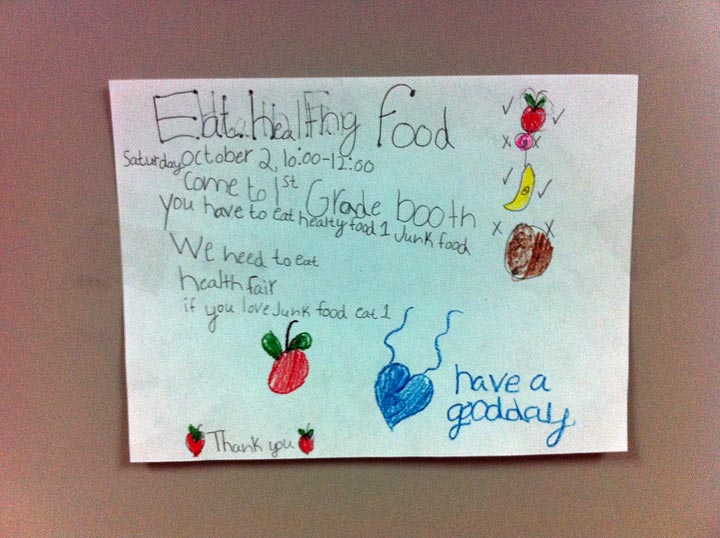 Eat Healthy food
Saturday, October 2, 10:00-12:00
Come to 1st Grade booth
you have to eat healty food 1 Junk food
We need to eat
health fair
if you love Junk food eat 1
have a
goodday
Thank you